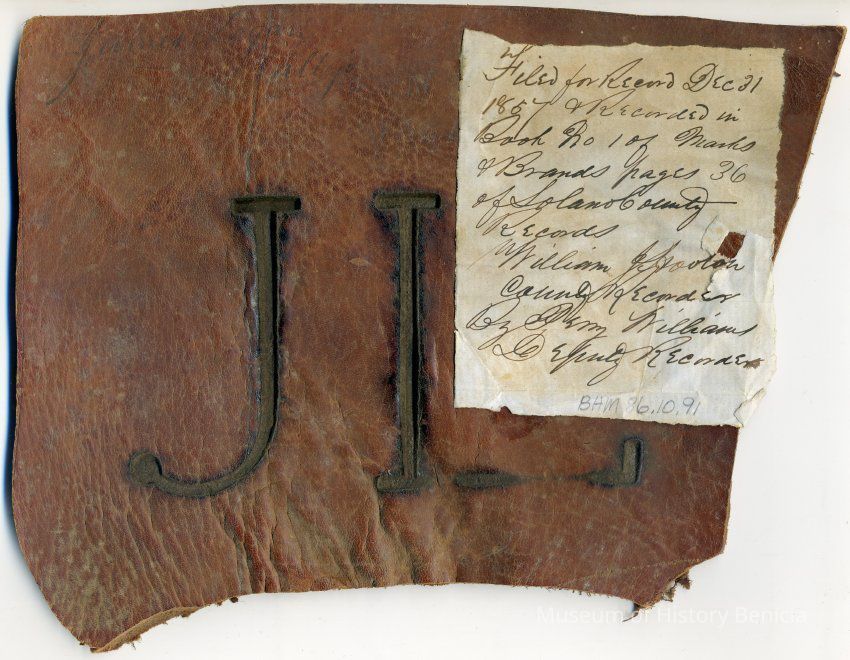 JL
Filed for Record Dec 31
1857 & Recorded in
Book No 1 of Marks
& Brands pages 36
of Solano County
Records
William Hooton
County Recorder
By Perry Williams
Deputy Recorder
BHM 86.10.91
Museum of History Benicia